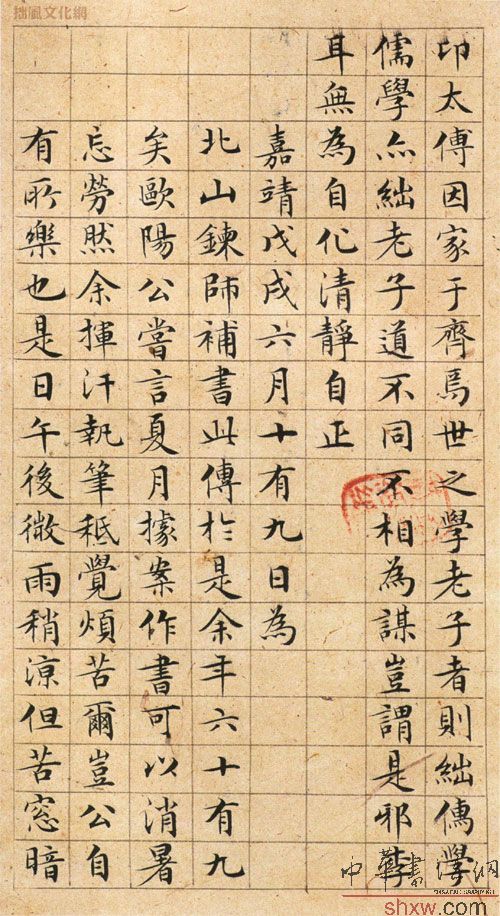 印太傅因家于齊焉世之學老子者則絀儒學
儒學亦絀老子道不同不相為謀豈謂是邪李
耳無為自化清靜自正
嘉靖戊戌六月十有九日為
北山鍊師補書此傳於是余年六十有九
矣歐陽公嘗言夏月據案作書可以消暑
忘勞然余揮汗執筆秖覺煩苦爾豈公自
有所樂也是日午後微雨稍涼但苦窓暗
拙風文化網
中華書法網
shxw.com